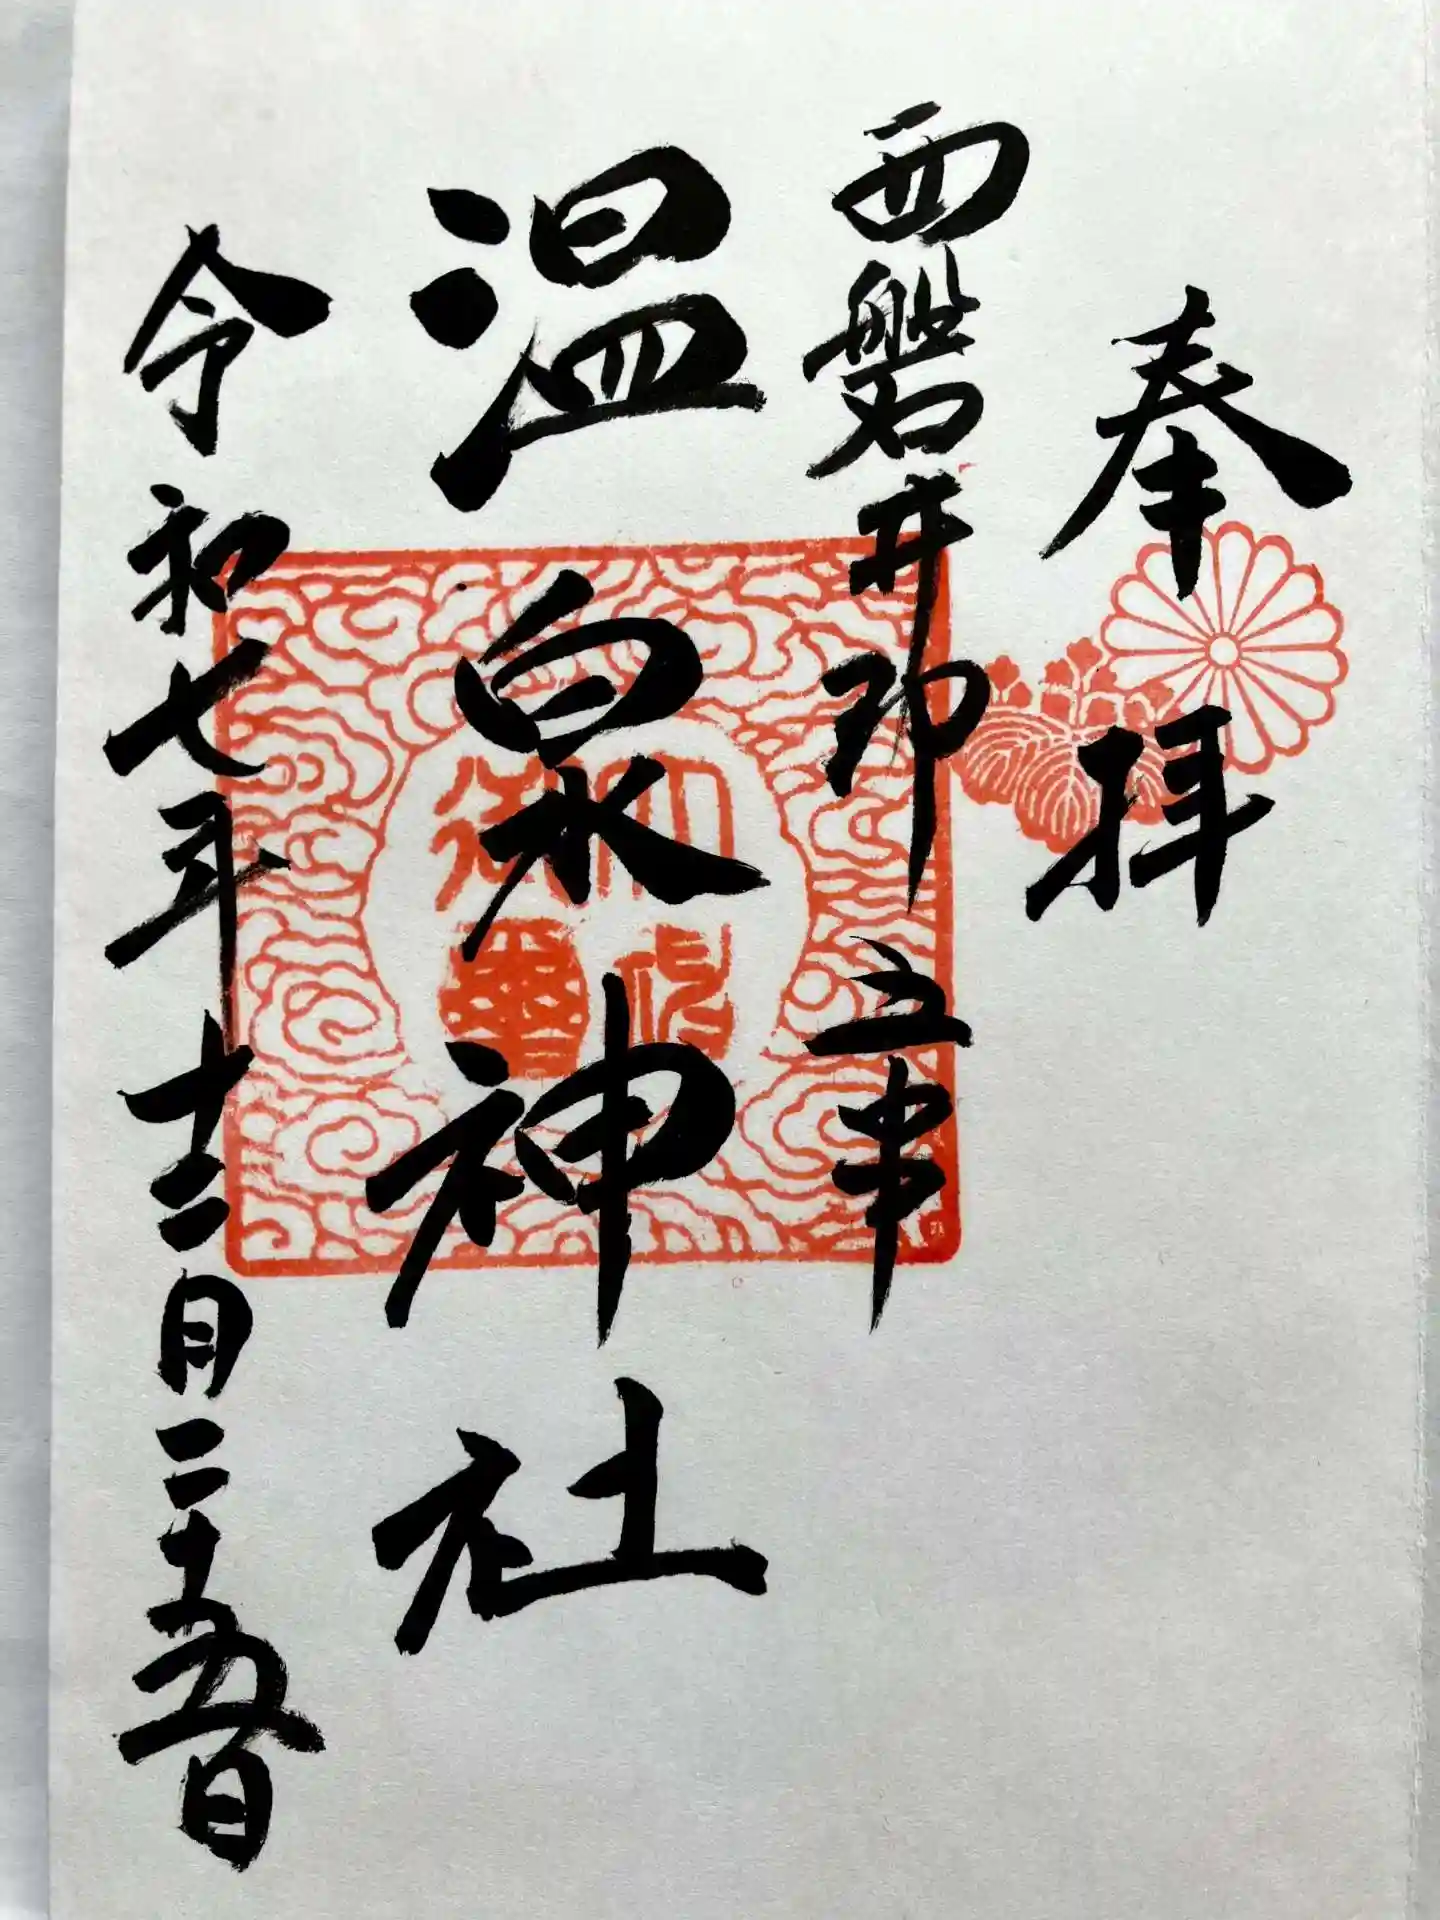 奉拝
西磐井郡 立東
温泉神社
令和七年十二月二十五日